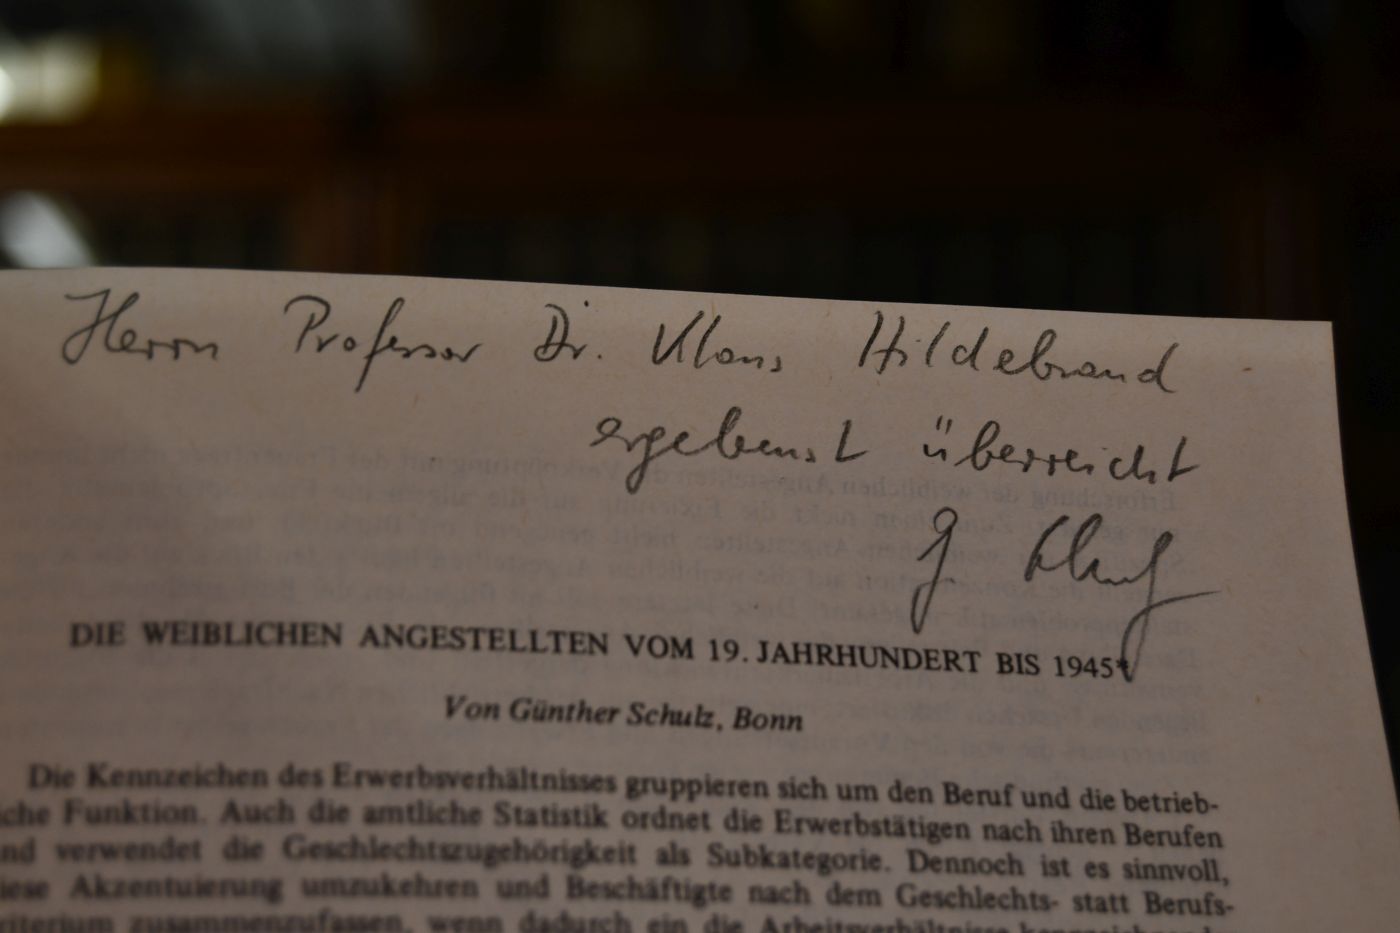 Herrn Professor Dr. Klaus Hildebrand
ergebenst überreicht
G Schulz
DIE WEIBLICHEN ANGESTELLTEN VOM 19. JAHRHUNDERT BIS 1945*
Von Günther Schulz, Bonn
Die Kennzeichen des Erwerbsverhältnisses gruppieren sich um den Beruf und die betrieb-
Funktion. Auch die amtliche Statistik ordnet die Erwerbstätigen nach ihren Berufen
verwendet die Geschlechtszugehörigkeit als Subkategorie. Dennoch ist es sinnvoll,
Akzentuierung umzukehren und Beschäftigte nach dem Geschlechts- statt Berufs-
zusammenzufassen, wenn dadurch ein die Arbeitsverhältnisse